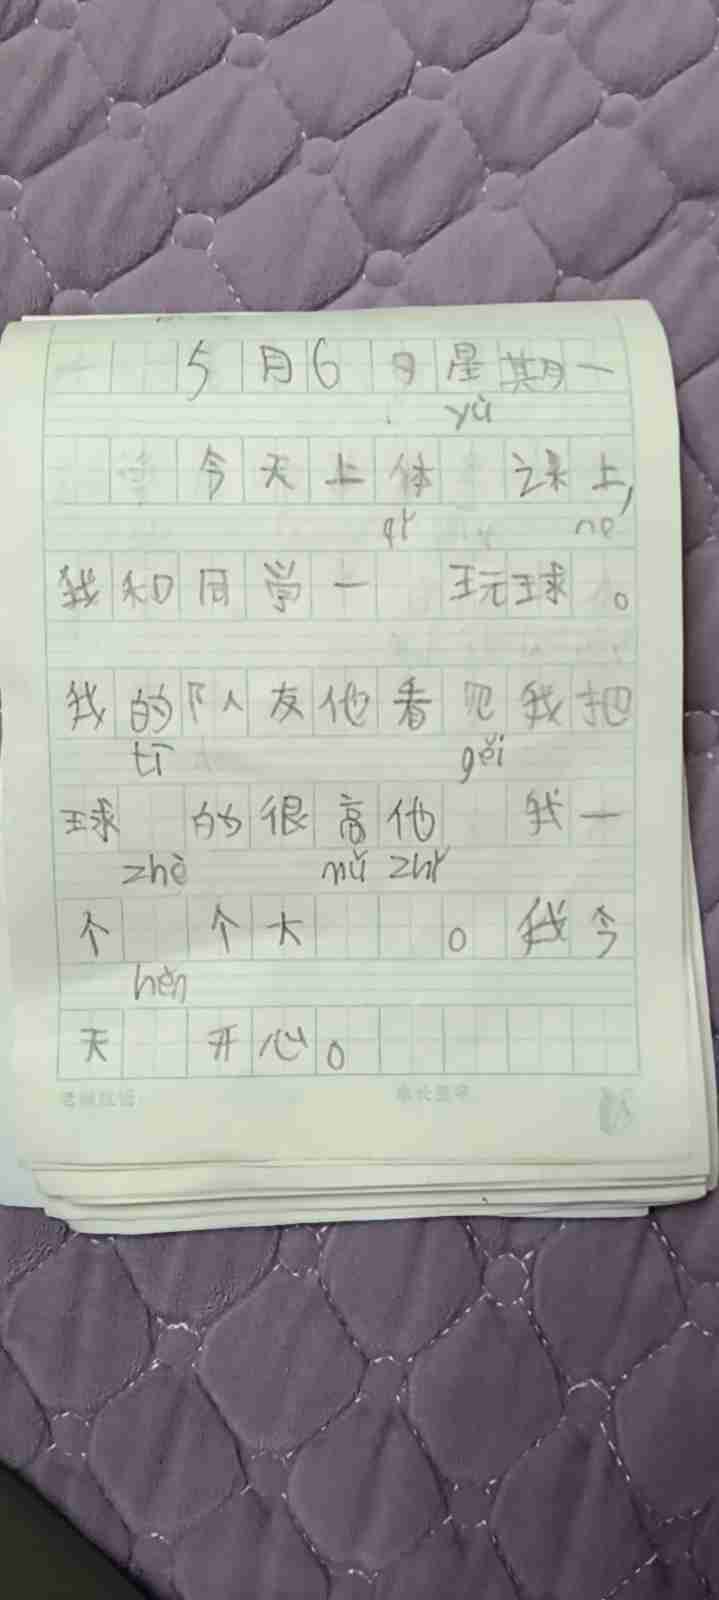 5月6日星期一
yù
今天上体 课上,
qǐ ne
我和同学一 玩球。
我的队友他看见我把
tī gěi
球 的很高他 我一
zhè mǔ zhǐ
个 个大 。我今
hěn
天 开心。